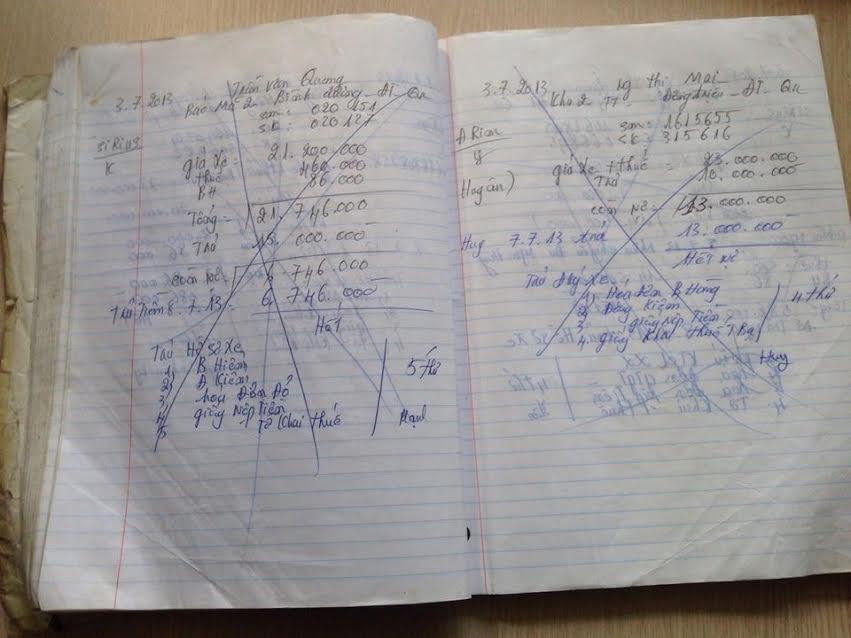 3.7.2013 Trần Văn Quang
Bình dương - ĐT - Qn
sm: 020151
SK: 020127
SiRius
K
giá xe = 21.200.000
thuế 460.000
BH 86.000
Tổng = 21.746.000
Trả 15.000.000
Còn nợ: 6.746.000
Trả Tiền 8.7.13 = 6.746.000
Hết
Trả Hồ Sơ Xe
1 B Hiểm
2 Đ Kiểm
3 hóa Đơn Đỏ
4 giấy Nộp Tiền
5 Tờ Khai thuế
5 Thứ
Hạnh
3.7.2013 ng thị Mai
Khu 2 TT - Đông Triều - ĐT - Qn
sm: 1615655
SK: 315616
giá xe + thuế = 23.000.000
Trả 10.000.000
còn nợ = 13.000.000
Huy 7.7.13 trả 13.000.000
Hết nợ
Trả Giấy Xe
1 Hóa Đơn B Hàng
2 Đăng Kiểm
3 giấy Nộp Tiền
4. giấy Khai Thuế T Bạ
4 Thứ
Huy